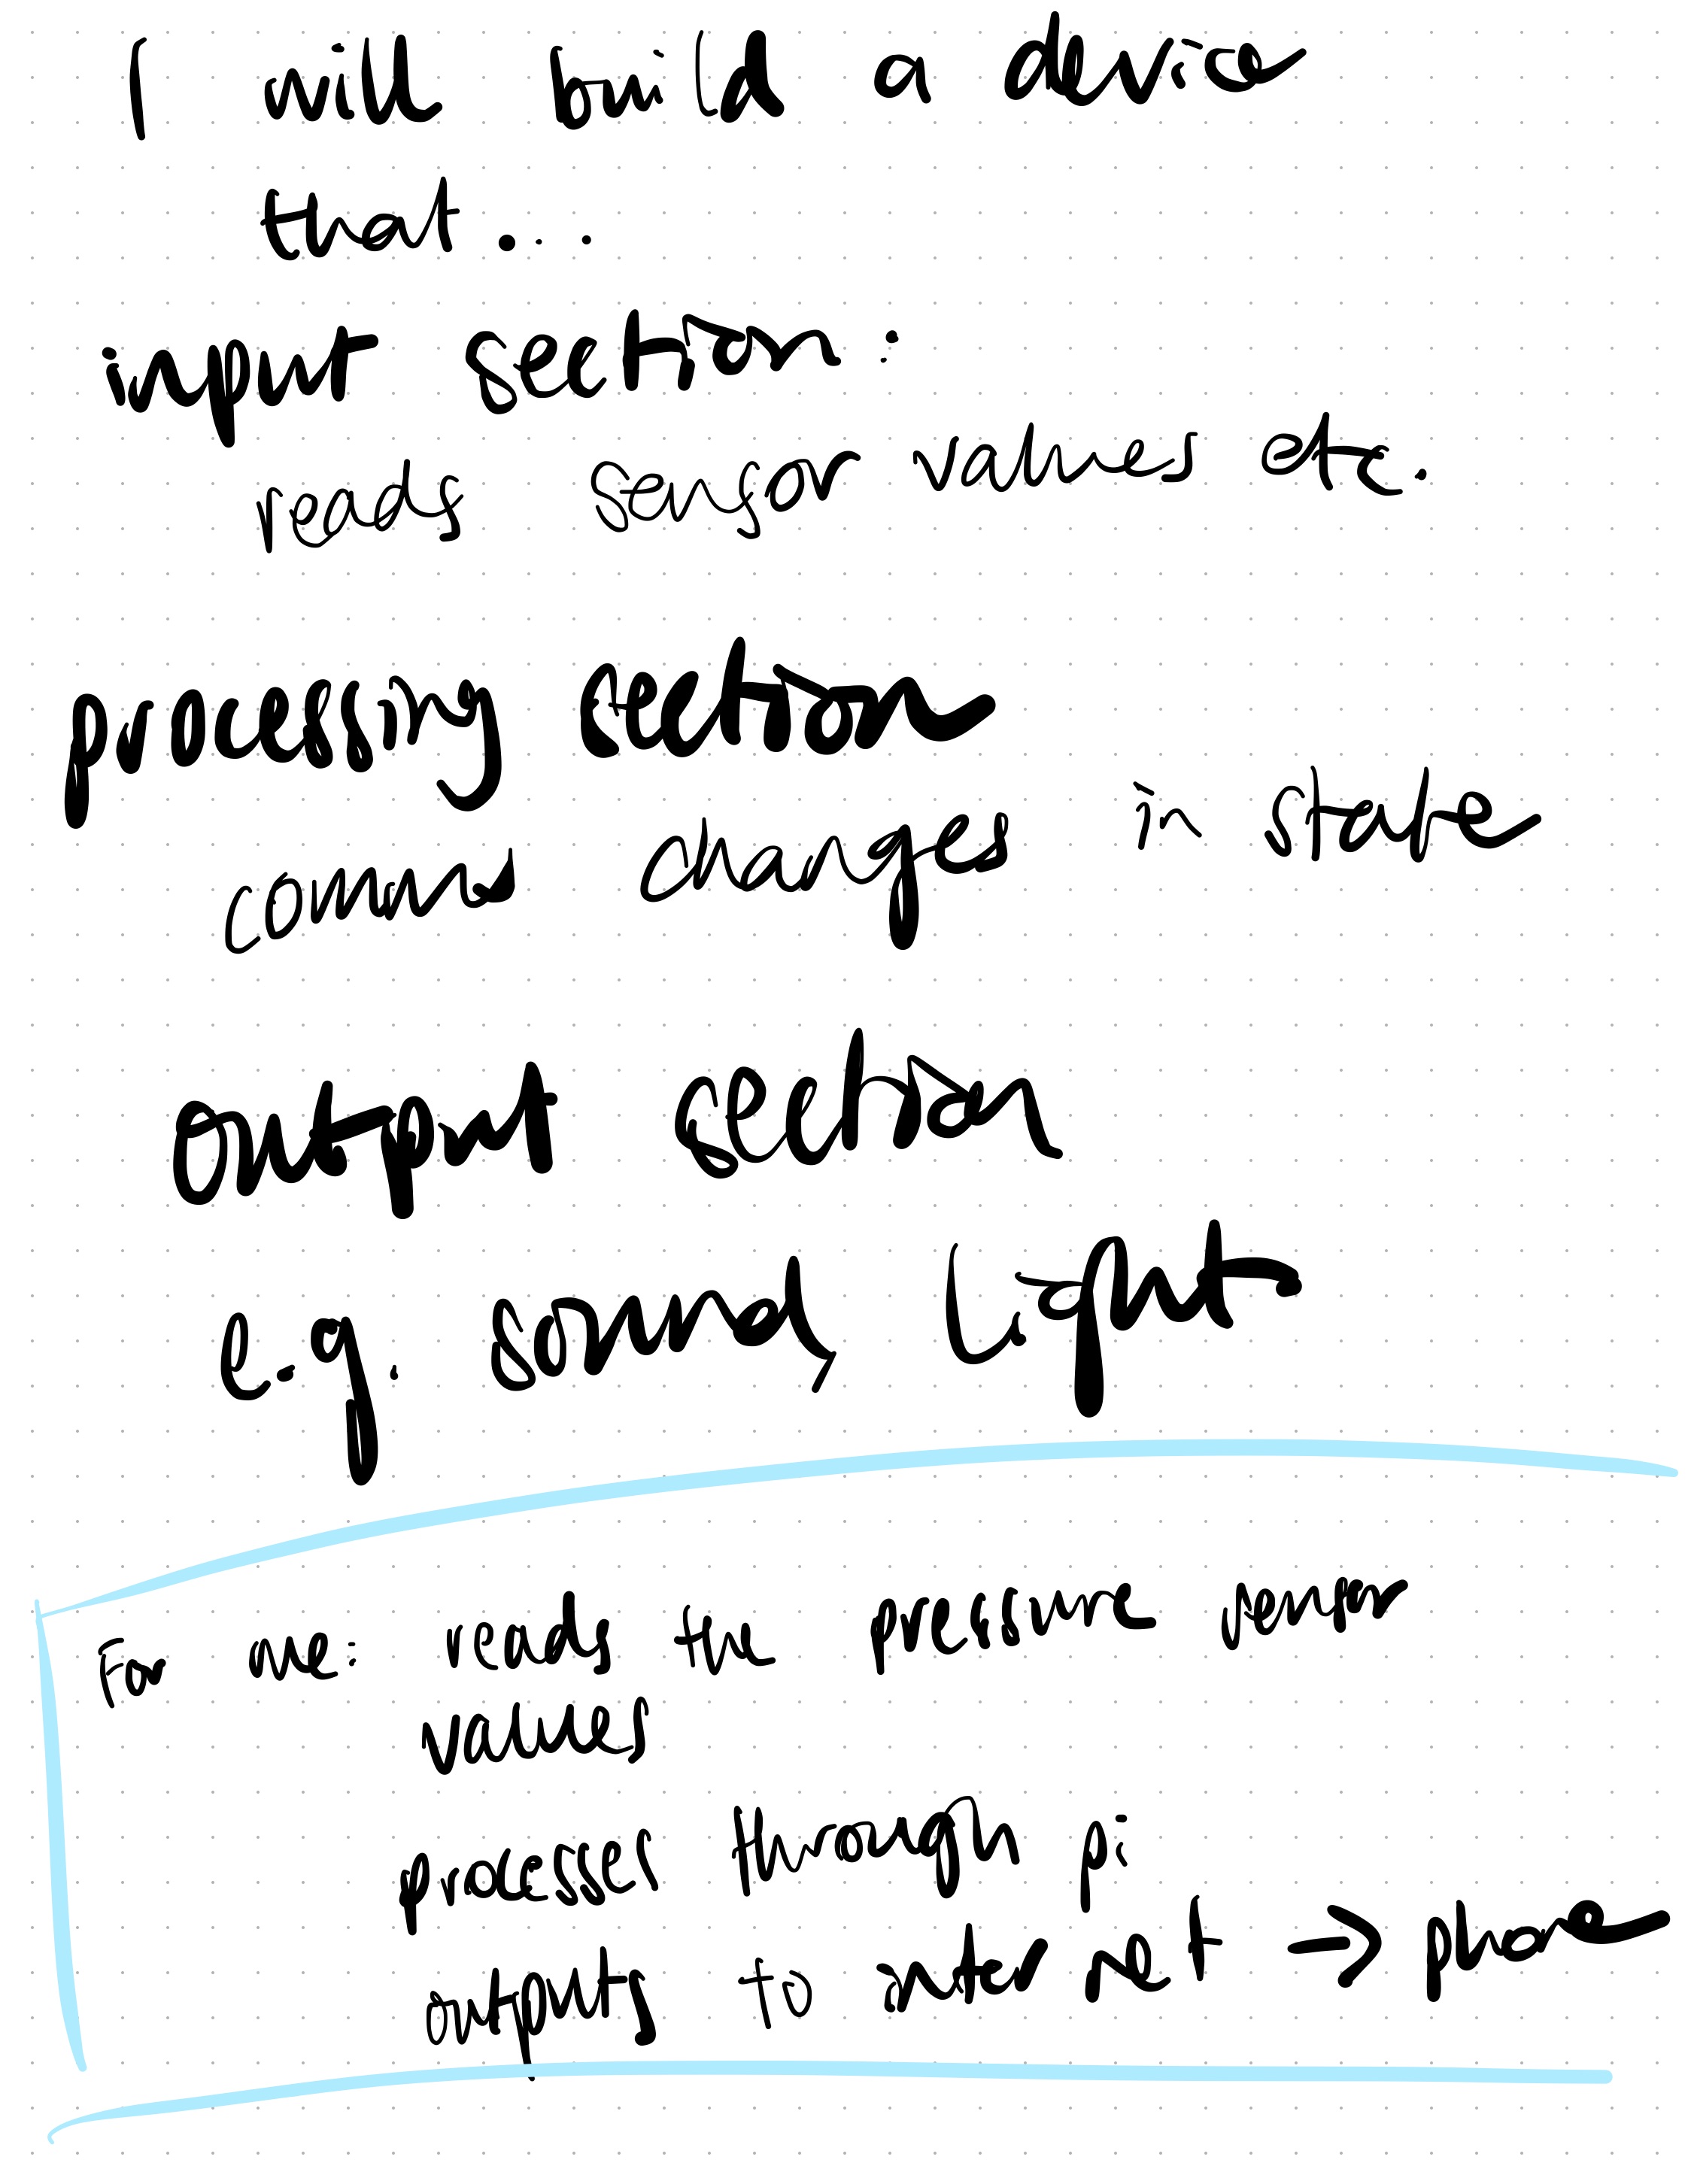 I will build a device
that....
input section:
reads sensor values etc.
processing section
changes in state
output section
e.g. sound, light
For me: reads the pressure sensor
values
processes through pi
outputs to internet → phone